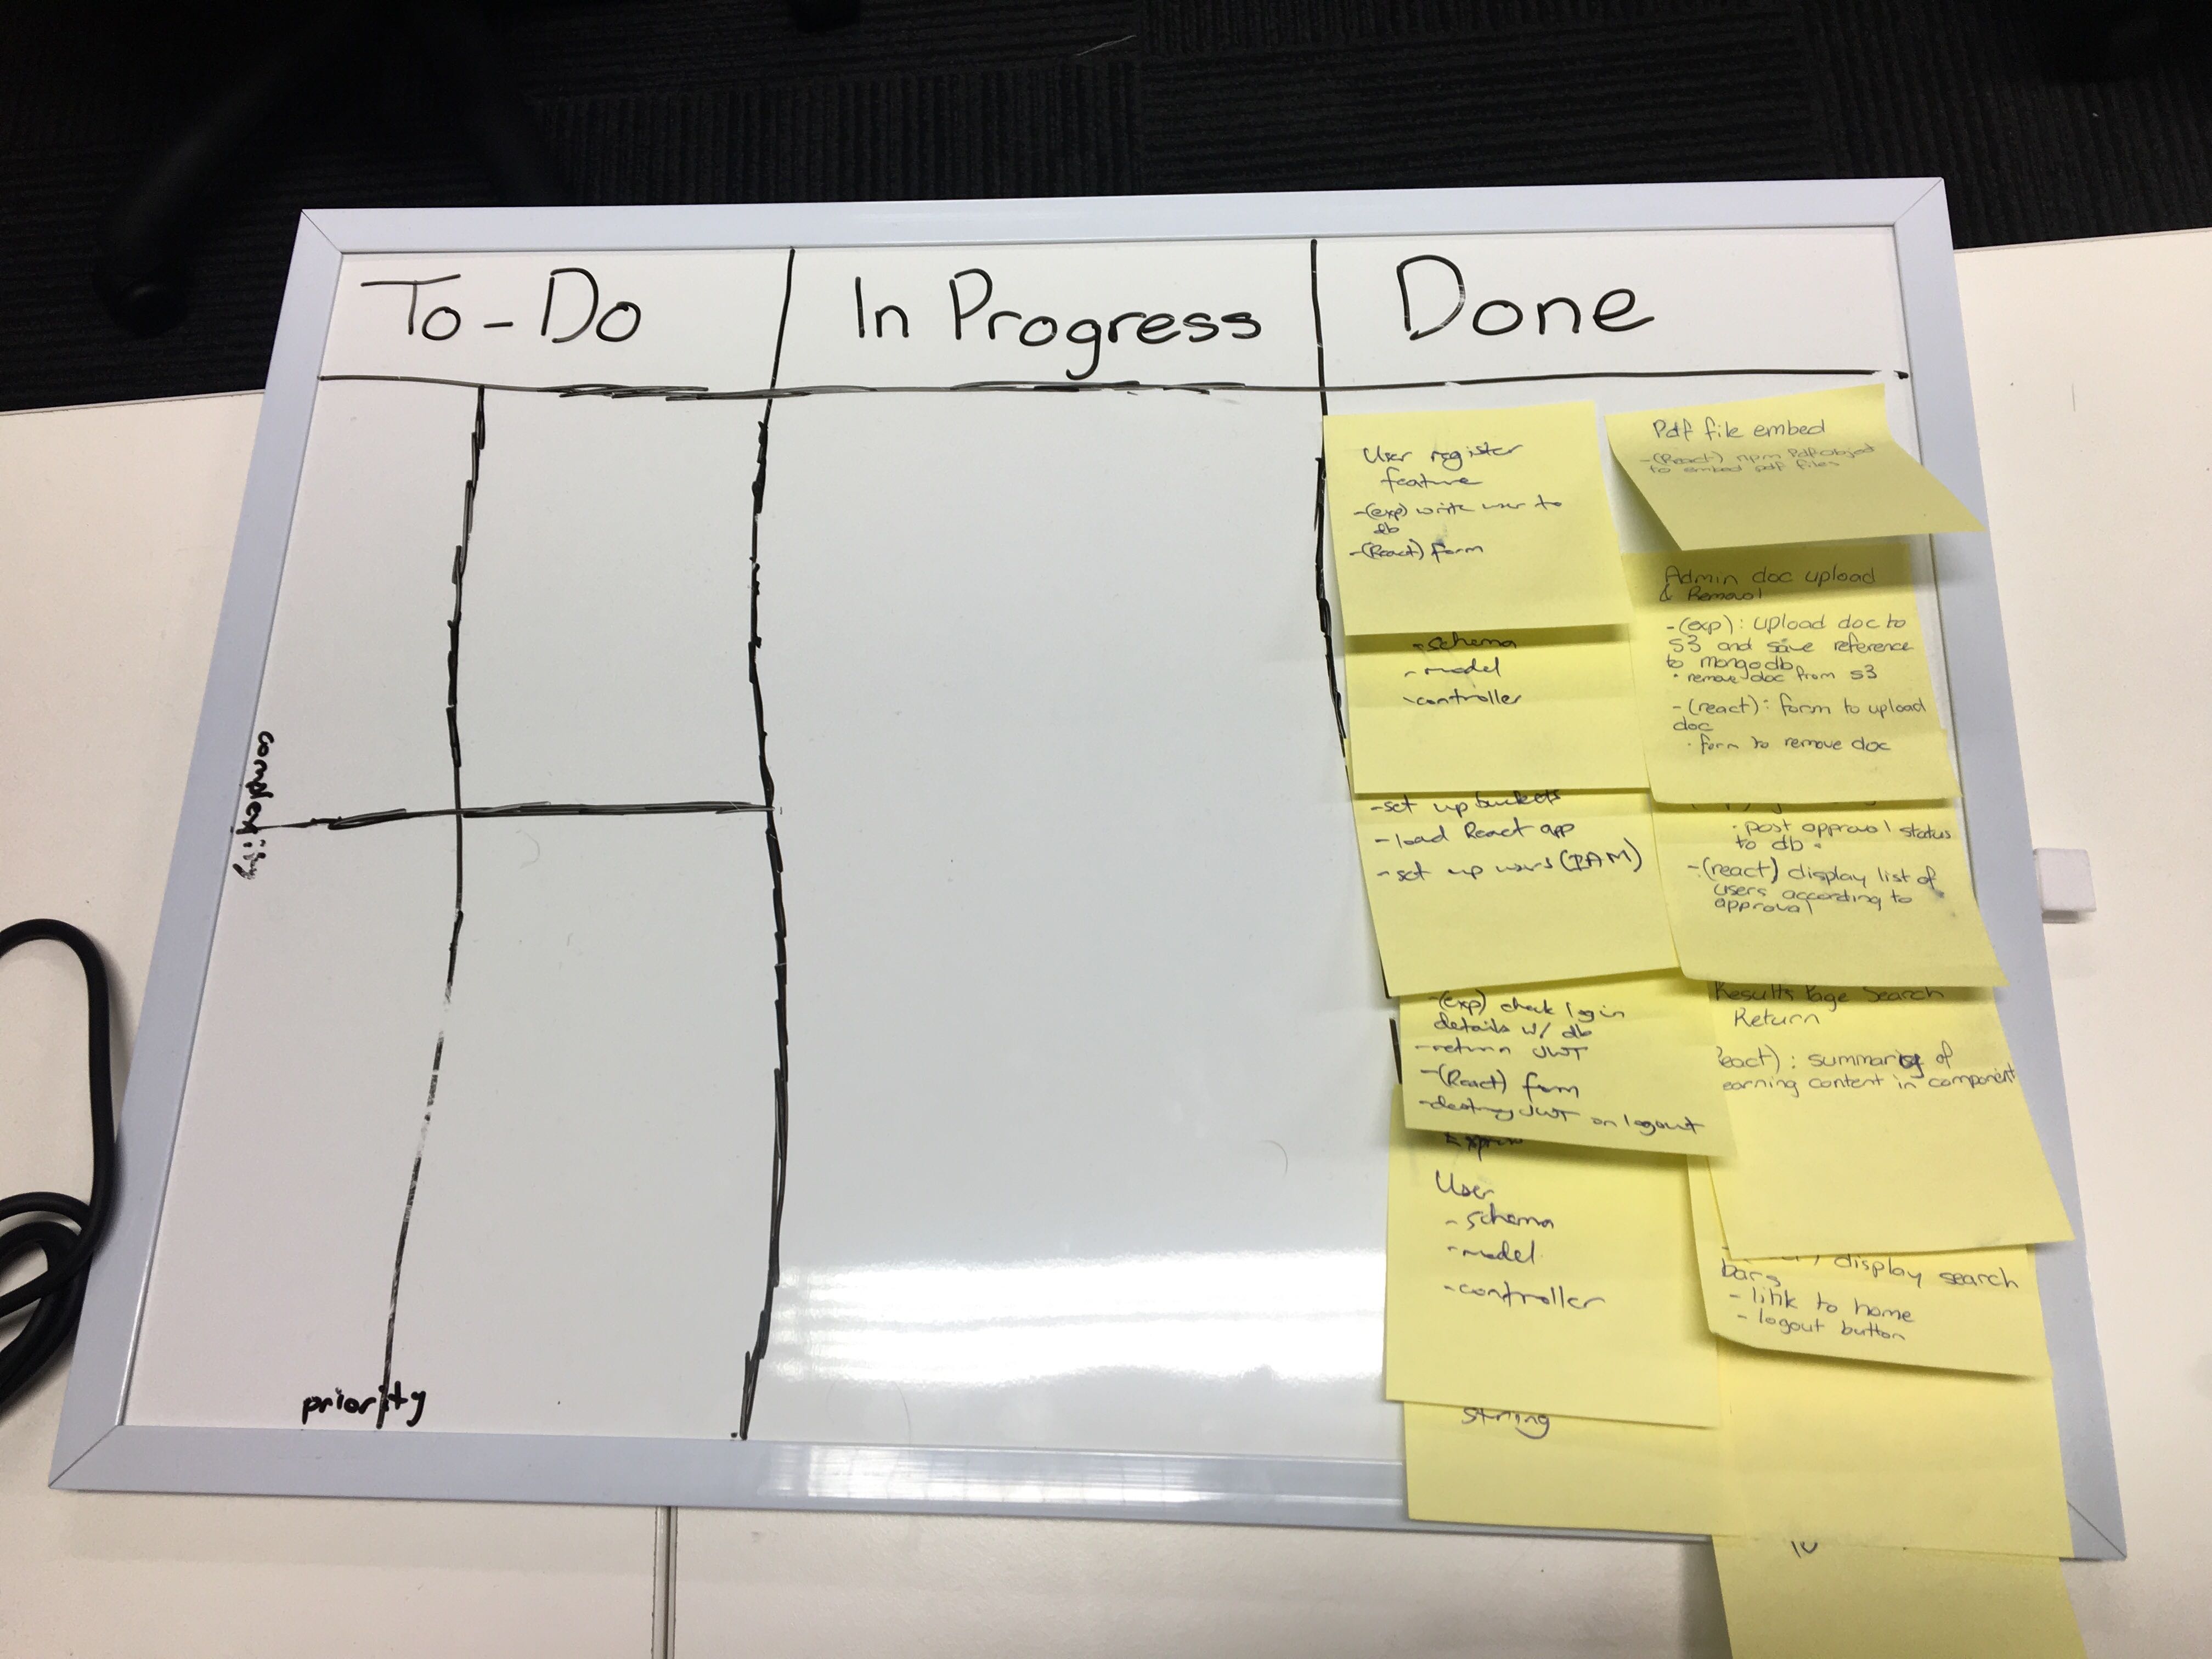 To-Do
In Progress
Done
complexity
priority
User register
feature
-(exp) write user to
db
-(React) form
-schema
-model
-controller
-set up buckets
-load React app
-set up users (IAM)
-(exp) check login
details w/ db
-return JWT
-(React) form
-destroy JWT on logout
User
-schema
-model
-controller
string
Pdf file embed
-(React) npm Pdfobject
to embed pdf files
Admin doc upload
& Removal
-(exp): upload doc to
S3 and save reference
to mongodb
• remove doc from S3
-(react): form to upload
doc
• form to remove doc
• post approval status
to db
-(react) display list of
users according to
approval
Results Page Search
Return
React): summary of
earning content in component
display search
bars
- link to home
- logout button